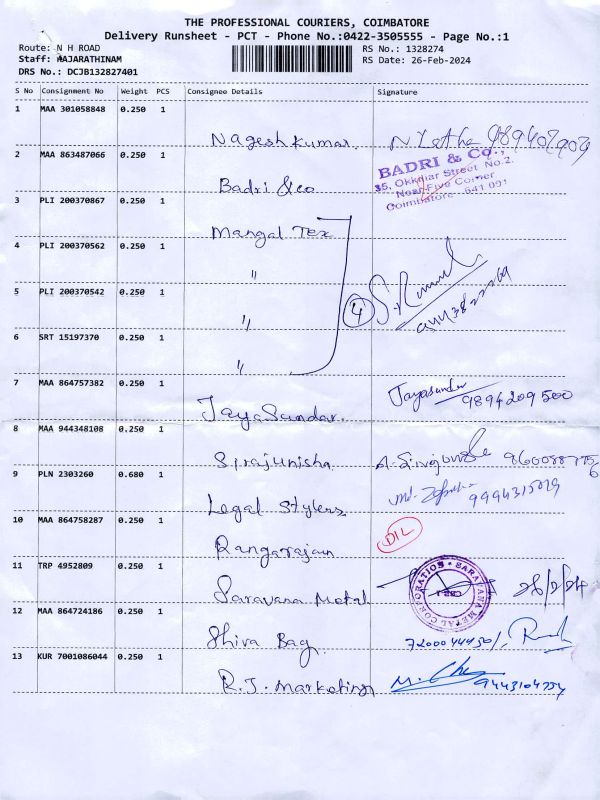 THE PROFESSIONAL COURIERS, COIMBATORE
Delivery Runsheet - PCT - Phone No.:0422-3505555 - Page No.:1
Route: N H ROAD
RS No.: 1328274
Staff: RAJARATHINAM
RS Date: 26-Feb-2024
DRS No.: DCJB132827401
S No Consignment No Weight PCS Consignee Details Signature
1 MAA 301058848 0.250 1
Nagesh Kumar. N Latha
2 MAA 863487066 0.250 1
Badri & co
BADRI & Co.,
35, Okkiliar Street No.2,
Near Five Corner
Coimbatore - 641 001
3 PLI 200370867 0.250 1
Mangal Tex
4 PLI 200370562 0.250 1
"
5 PLI 200370542 0.250 1
"
4
6 SRT 15197370 0.250 1
"
7 MAA 864757382 0.250 1
JayaSundar. Jayasundar 9894209500
8 MAA 944348108 0.250 1
Sirajunisha
9 PLN 2303260 0.680 1
Legal Stylers
10 MAA 864758287 0.250 1
Rangarajan D/L
11 TRP 4952809 0.250 1
Saravana Metal SARAVANA METAL CORPORATION 28/2/24
12 MAA 864724186 0.250 1
Shiva Bag. 7200044430/
13 KUR 7001086044 0.250 1
R.J. Marketings 9443104754